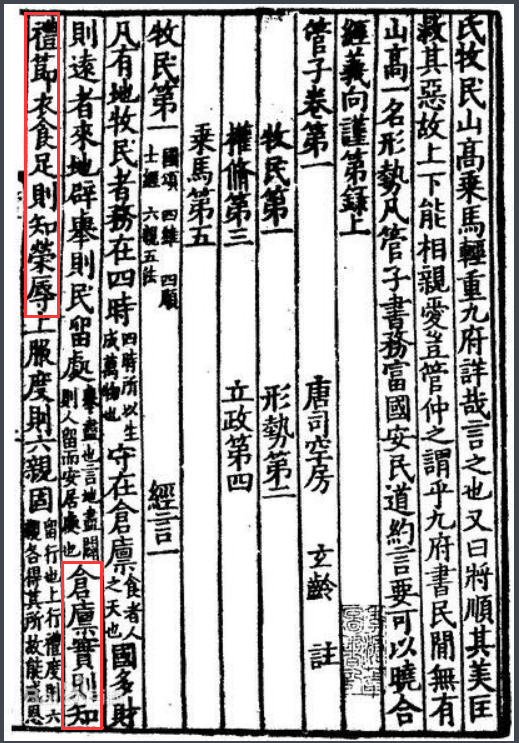 氏牧民山高乘馬輕重九府詳哉言之也又曰將順其美匡
救其惡故上下能相親愛豈管仲之謂乎九府書民閒無有
山高一名形勢凡管子書務富國安民道約言要可以曉合
經義向謹第錄上
管子卷第一 唐司空房 玄齡 註
牧民第一 形勢第二
權脩第三 立政第四
乗馬第五
牧民第一 國頌 四維 四順 士經 六親五法 經言一
凡有地牧民者務在四時 四時所以生成萬物也 守在倉廪 食者人之天也 國多財
則遠者來地辟舉則民留處 舉盡也言地盡闢則人留而安居處也 倉廪實則知
禮節衣食足則知榮辱上服度則六親固 服行也上行禮度則六親各得其所故能感恩